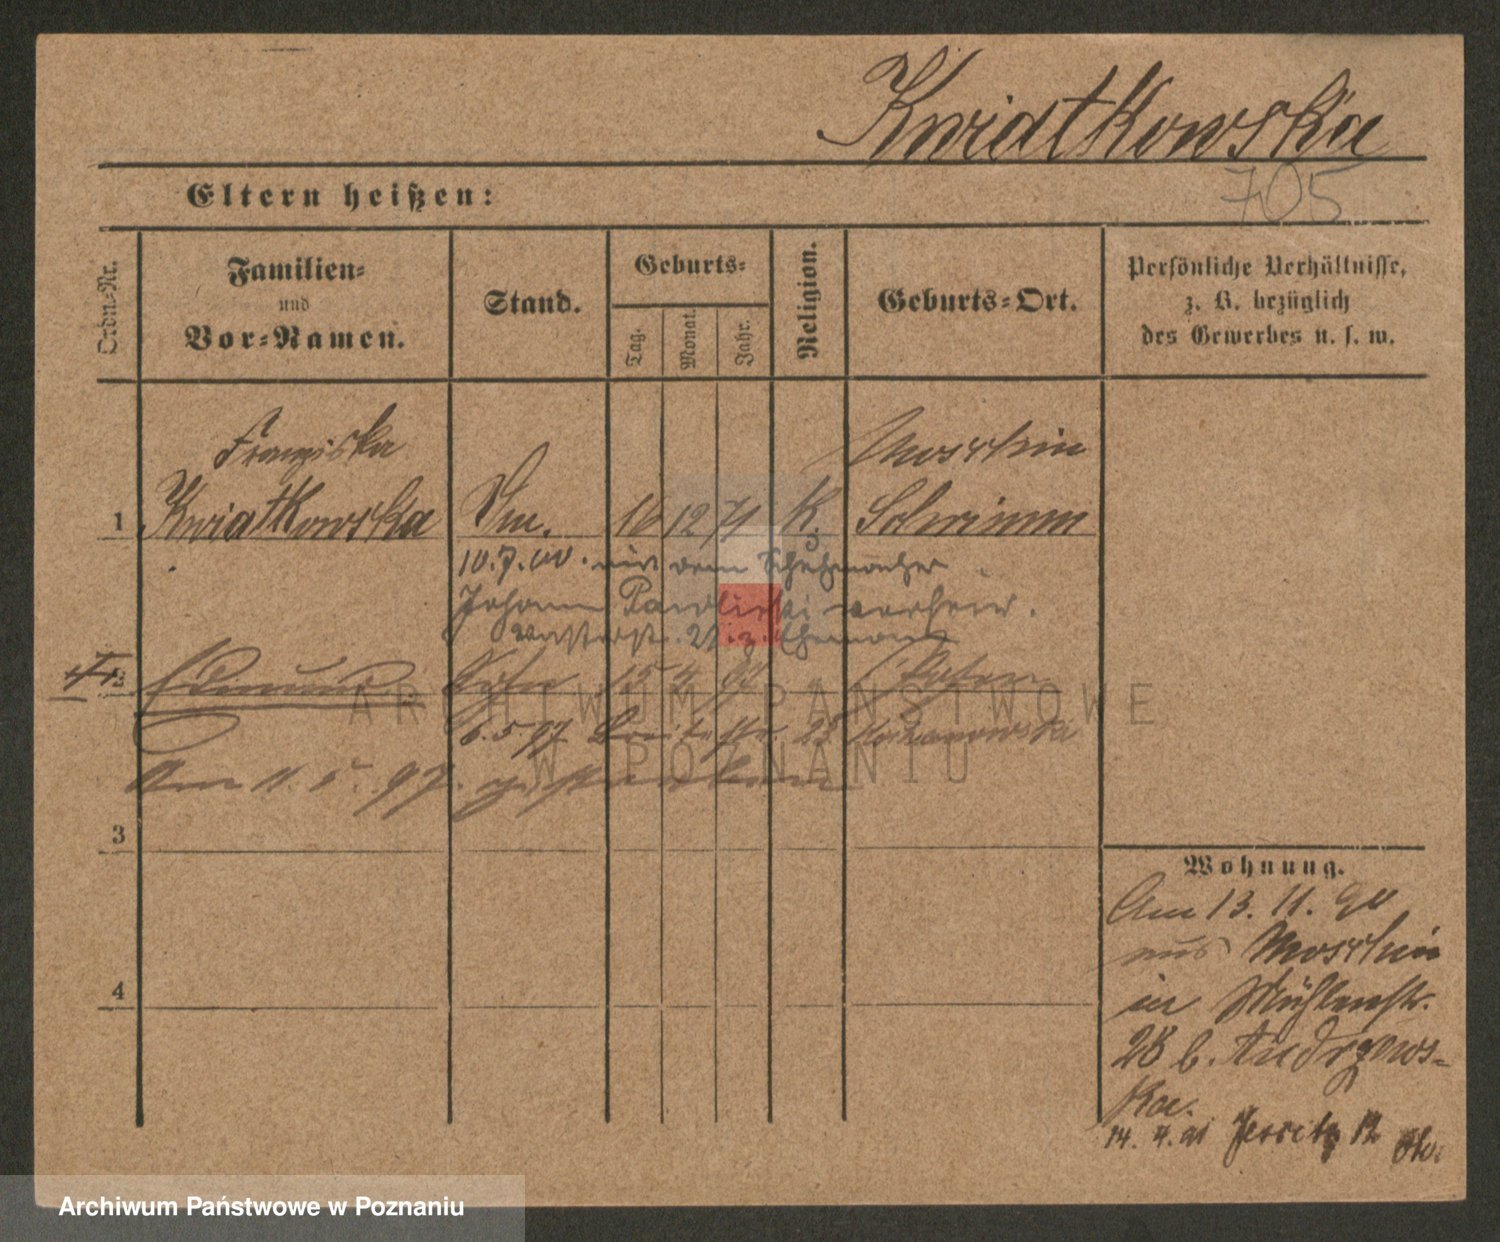 Kwiatkowska
705
Eltern heißen:
Ordn.-Nr.
Familien-
und
Vor-Namen.
Stand.
Geburts-
Tag.
Monat.
Jahr.
Religion.
Geburts-Ort.
Persönliche Verhältnisse,
z. B. bezüglich
des Gewerbes u. s. w.
Franziska
Moschin
1 Kwiatkowska 16 12 71 K. Schrimm
10.7.00. mit dem Schuhmacher
Johann Pawlicki verheir.
Ehemann
2 Edmund Sohn 15 4 Posen
6.5 97 Breitestr. 25
Am 11. 5. 97. gestorben
3
4
Wohnung.
Am 13. 11. 90
aus Moschin
in Mühlenstr.
28 b. Andrzews-
ka.
14. 4. 91 Jersitz 12
ARCHIWUM PAŃSTWOWE
W POZNANIU
Archiwum Państwowe w Poznaniu